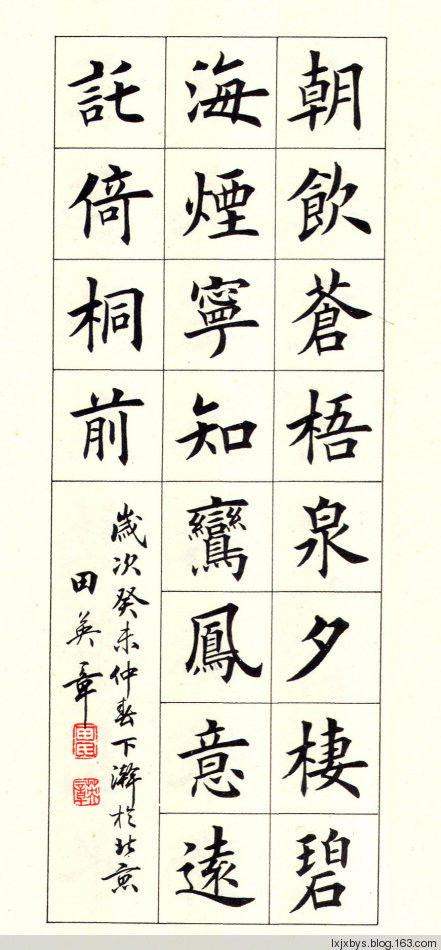 朝飲蒼梧泉夕棲碧
海煙寧知鸞鳳意遠
託倚桐前
歲次癸未仲春下澣於北京
田英章
田氏
英章
lxjxbys.blog.163.com